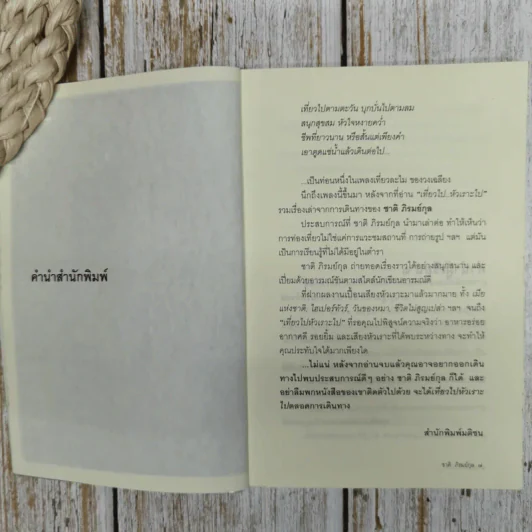 คำนำสำนักพิมพ์
เที่ยวไปตามตะวัน บุกบั่นไปตามลม
สนุกสุขสม หัวใจหงายคว่ำ
ชีพที่ยาวนาน หรือสั้นแต่เพียงค่ำ
เอาตูดแช่น้ำแล้วเดินต่อไป...
...เป็นท่อนหนึ่งในเพลงเที่ยวละไม ของวงเฉลียง
นึกถึงเพลงนี้ขึ้นมา หลังจากที่อ่าน “เที่ยวไป..หัวเราะไป”
รวมเรื่องเล่าจากการเดินทางของ ชาติ ภิรมย์กุล
ประสบการณ์ที่ ชาติ ภิรมย์กุล นำมาเล่าต่อ ทำให้เห็นว่า
การท่องเที่ยวไม่ใช่แค่การแวะชมสถานที่ การถ่ายรูป ฯลฯ แต่มัน
เป็นการเรียนรู้ที่ไม่ได้มีอยู่ในตำรา
ชาติ ภิรมย์กุล ถ่ายทอดเรื่องราวได้อย่างสนุกสนาน และ
เปี่ยมด้วยอารมณ์ขันตามสไตล์นักเขียนอารมณ์ดี
ที่ฝากผลงานเปื้อนเสียงหัวเราะมาแล้วมากมาย ทั้ง เมีย
แห่งชาติ, ไส่เปอร์ทัวร์, วันของหมา, ชีวิตไม่สูญเปล่า ฯลฯ จนถึง
“เที่ยวไปหัวเราะไป” ที่รอคุณไปพิสูจน์ความจริงว่า อาหารอร่อย
อากาศดี รอยยิ้ม และเสียงหัวเราะที่ได้พบระหว่างทาง จะทำให้
คุณประทับใจได้มากเพียงใด
...ไม่แน่ หลังจากอ่านจบแล้วคุณอาจอยากออกเดิน
ทางไปพบประสบการณ์ดีๆ อย่าง ชาติ ภิรมย์กุล ก็ได้ และ
อย่าลืมพกหนังสือของเขาติดตัวไปด้วย จะได้เที่ยวไปหัวเราะ
ไปตลอดการเดินทาง
สำนักพิมพ์มติชน
ชาติ ภิรมย์กุล